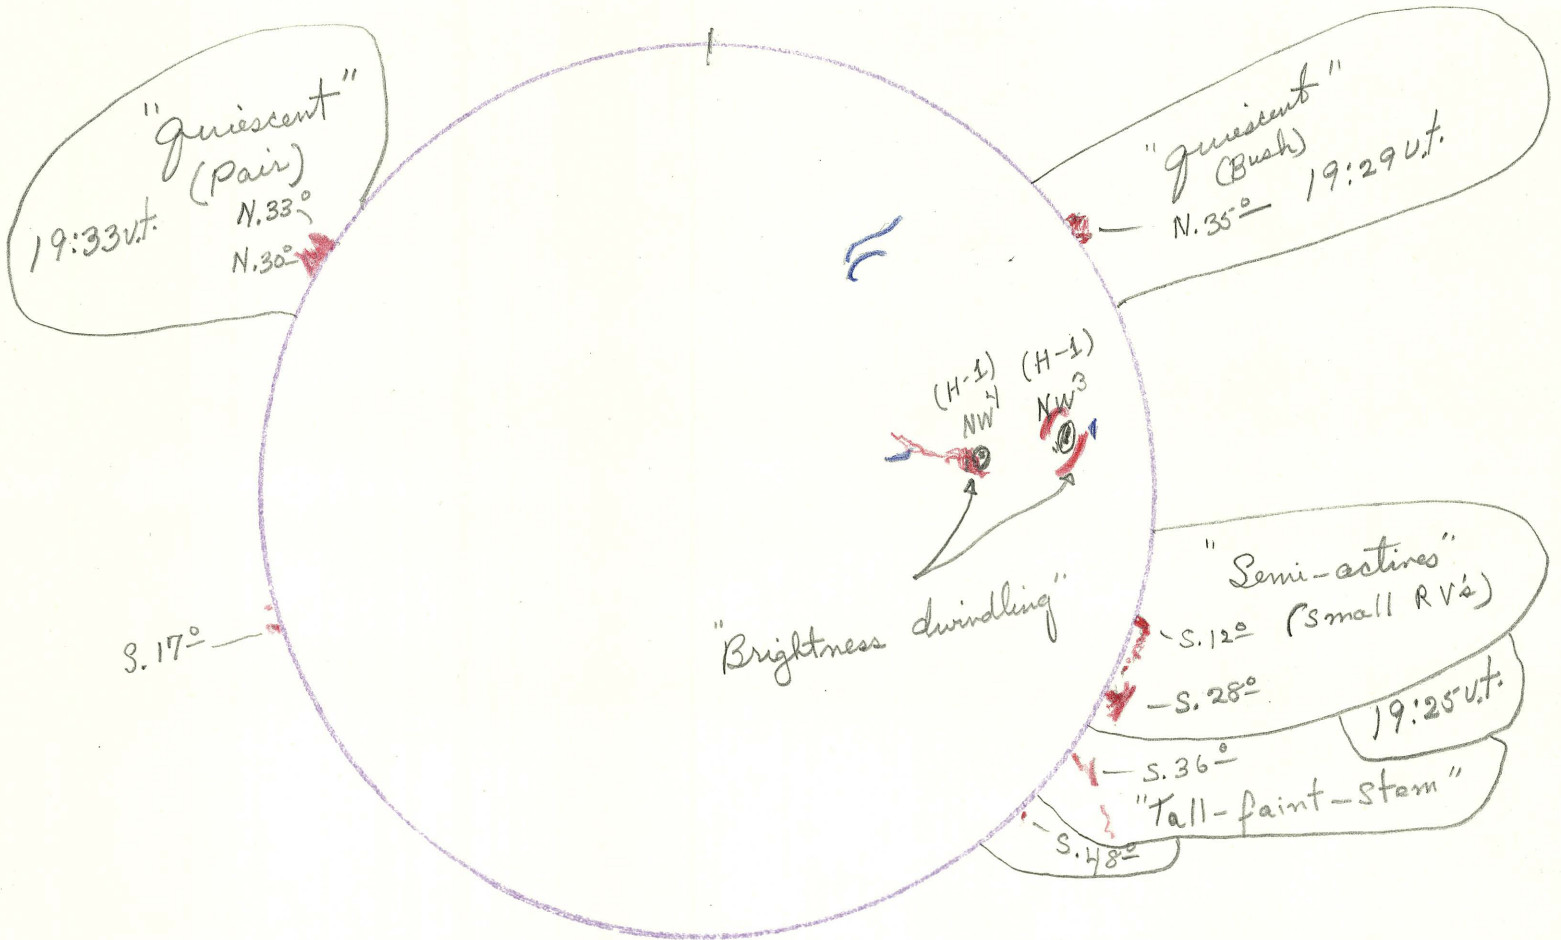 "Quiescent"
(Pair)
N.33°
19:33 U.t.
N.30°
"Quiescent"
(Bush)
N.35° 19:29 U.t.
(H-1) (H-1)
NW4 NW3
"Brightness dwindling"
S.17°
"Semi-actives"
S.12° (Small RV's)
S.28°
19:25 U.t.
S.36°
"Tall-faint-Stem"
S.48°